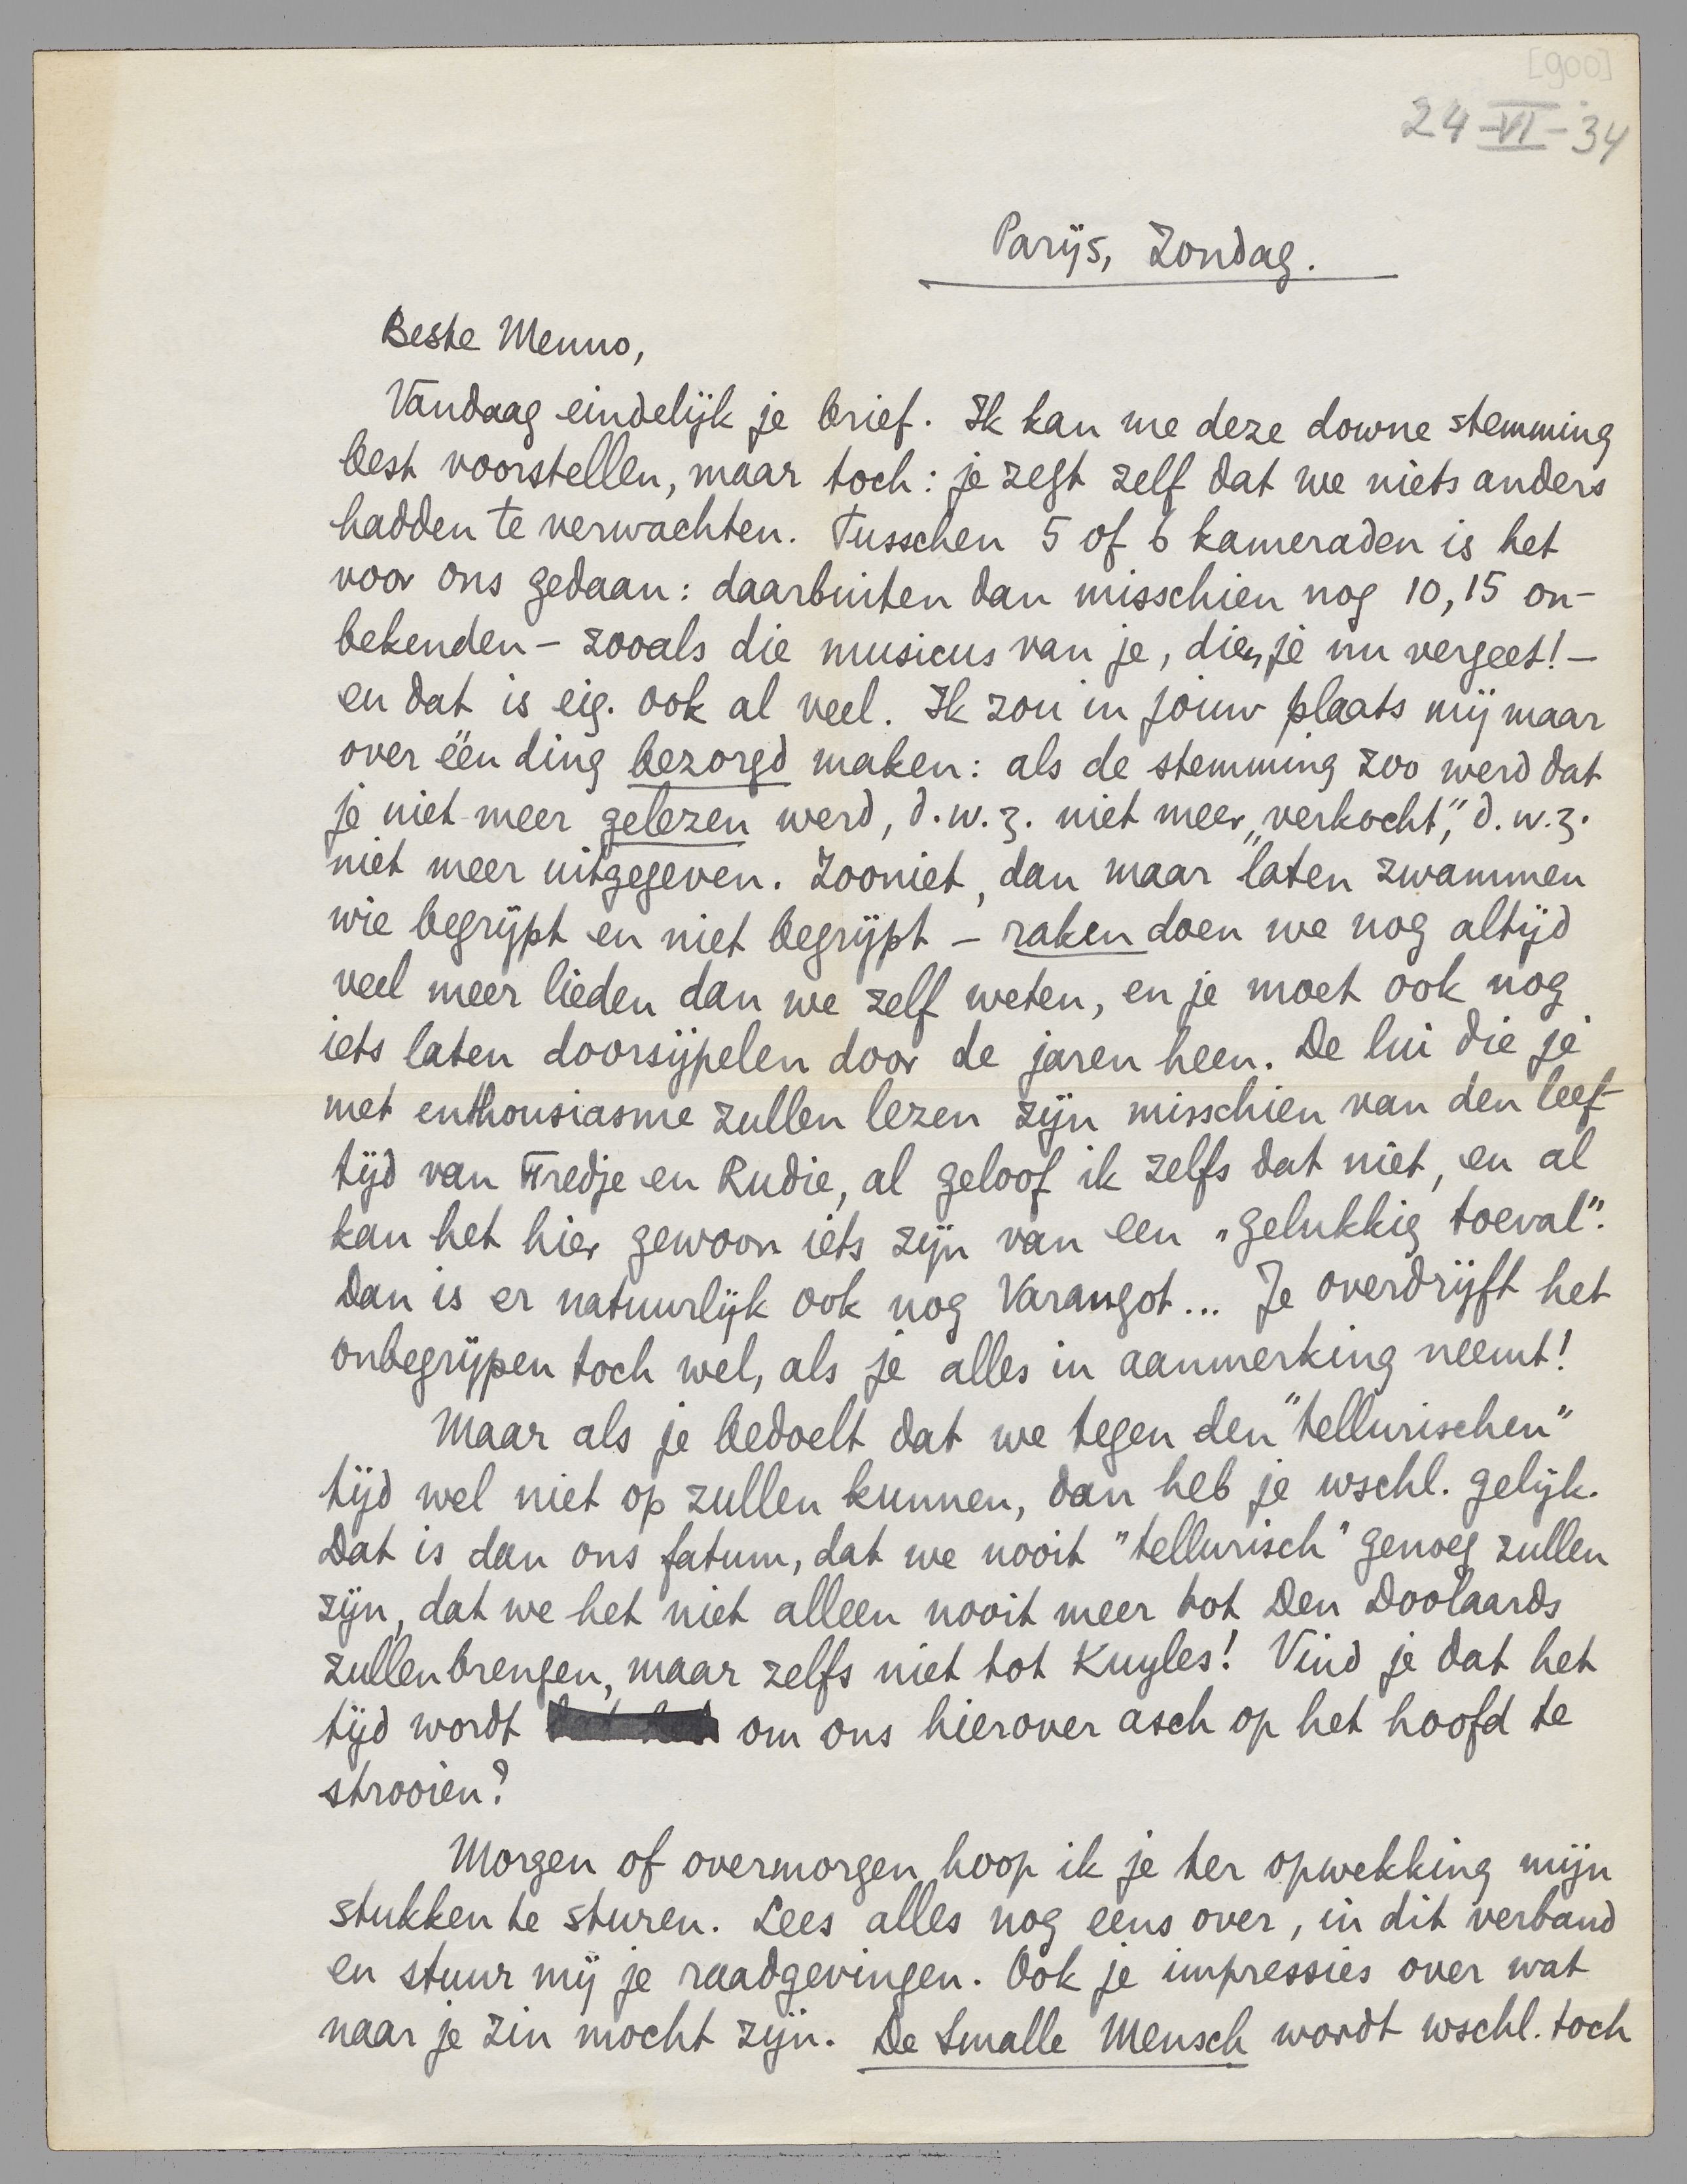 [900]
24-VI-'34
Parijs, Zondag.
Beste Menno,
Vandaag eindelijk je brief. Ik kan me deze downe stemming
best voorstellen, maar toch: je zegt zelf dat we niets anders
hadden te verwachten. Tusschen 5 of 6 kameraden is het
voor ons gedaan: daarbuiten dan misschien nog 10, 15 on-
bekenden - zooals die musicus van je, dien je nu vergeet! -
en dat is eig. ook al veel. Ik zou in jouw plaats mij maar
over één ding bezorgd maken: als de stemming zoo werd dat
je niet meer gelezen werd, d.w.z. niet meer „verkocht”, d.w.z.
niet meer uitgegeven. Zooniet, dan maar laten zwammen
wie begrijpt en niet begrijpt - raken doen we nog altijd
veel meer lieden dan we zelf weten, en je moet ook nog
iets laten doorsijpelen door de jaren heen. De lui die je
met enthousiasme zullen lezen zijn misschien van den leef-
tijd van Fredje en Rudie, al geloof ik zelfs dat niet, en al
kan het hier gewoon iets zijn van een „gelukkig toeval”.
Dan is er natuurlijk ook nog Varangot... Je overdrijft het
onbegrijpen toch wel, als je alles in aanmerking neemt!
Maar als je bedoelt dat we tegen den "tellurischen"
tijd wel niet op zullen kunnen, dan heb je wschl. gelijk.
Dat is dan ons fatum, dat we nooit "tellurisch" genoeg zullen
zijn, dat we het niet alleen nooit meer tot Den Doolaards
zullen brengen, maar zelfs niet tot Kuyles! Vind je dat het
tijd wordt om ons hierover asch op het hoofd te
strooien?
Morgen of overmorgen hoop ik je ter opwekking mijn
stukken te sturen. Lees alles nog eens over, in dit verband
en stuur mij je raadgevingen. Ook je impressies over wat
naar je zin mocht zijn. De Smalle Mensch wordt wschl. toch